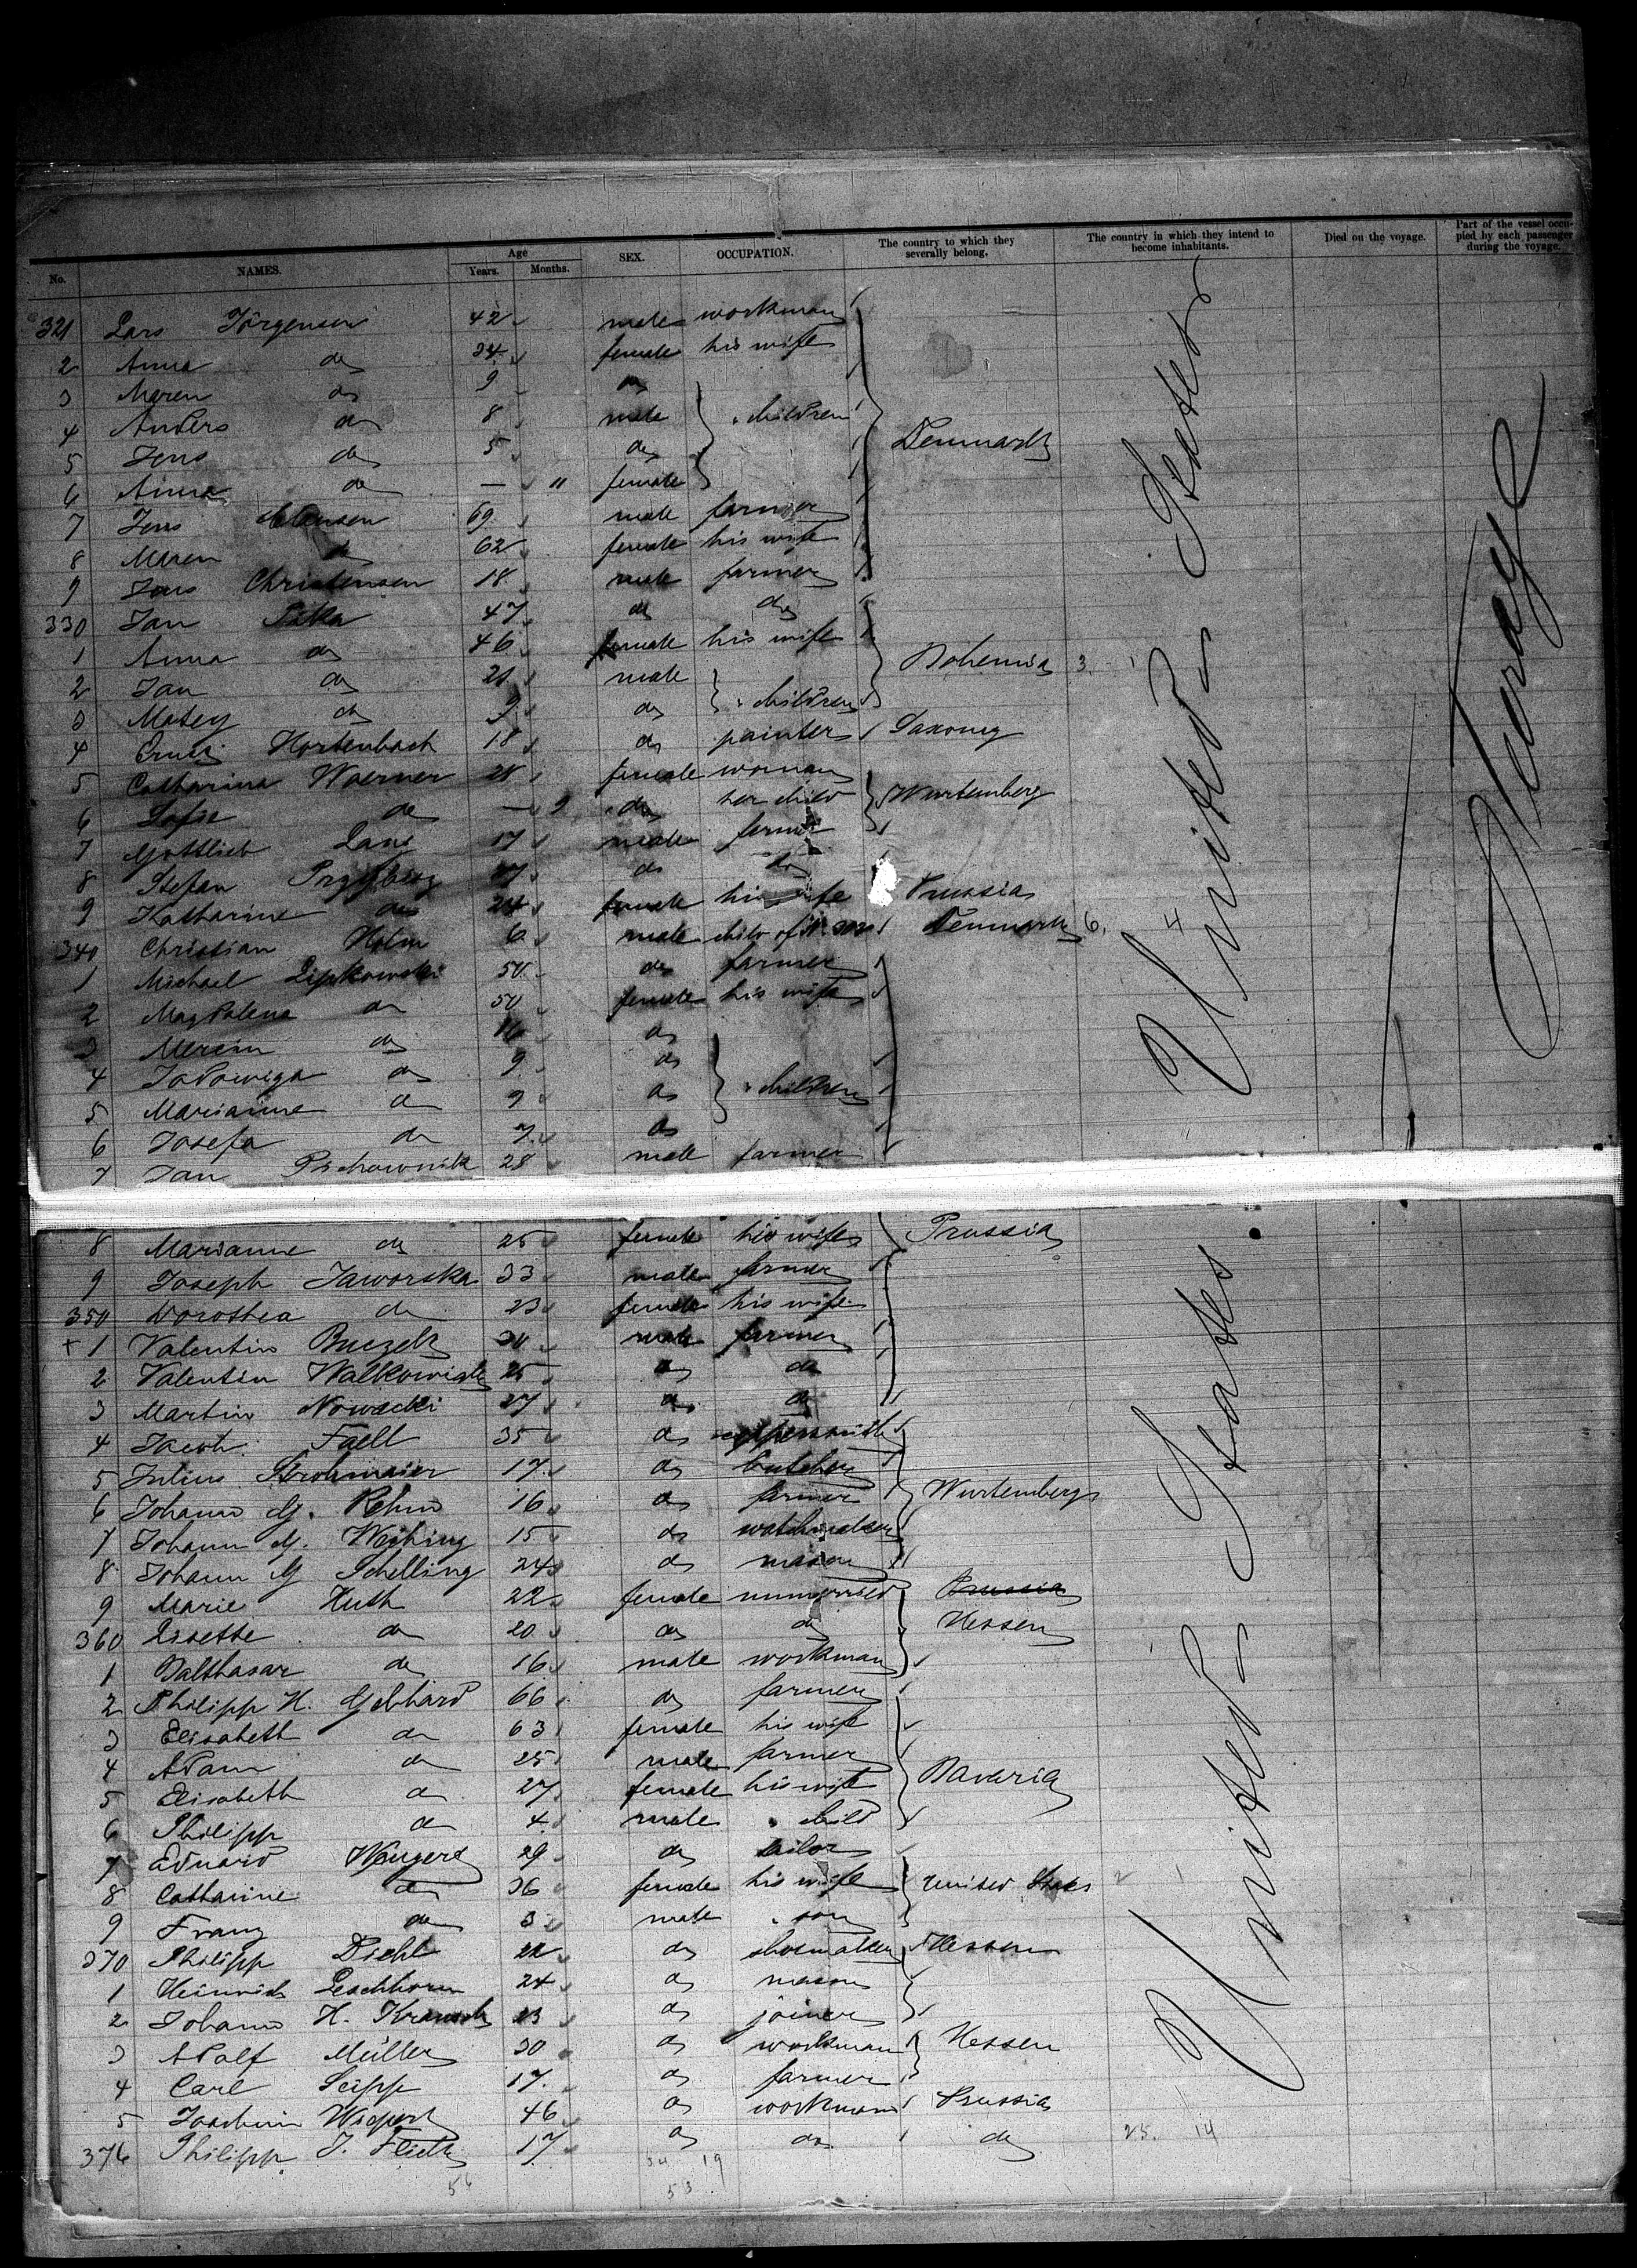 No. NAMES. Age Years. Months. SEX. OCCUPATION. The country to which they severally belong. The country in which they intend to become inhabitants. Died on the voyage. Part of the vessel occupied by each passenger during the voyage.
321 Lars Jörgensen 42 male workman
2 Anna do 34 female his wife
3 Maren do 9 do
4 Anders do 8 male children
5 Jens do 5 do Denmark
6 Anna do — " female
7 Jens Clausen 69 male farmer
8 Maren do 62 female his wife
9 Jens Christensen 18 male farmer
330 Jan 47 do do
1 Anna do 46 female his wife Bohemia 3
2 Jan do 21 male
3 Matey do 9 do children
4 Hortenbach 18 do painter Saxony
5 Catharina Woerner 28 female woman
6 Sofie do — 9 do her child Wurtemberg
7 Gottlieb Lang 17 male farmer
8 Stefan 27 do do
9 Katharine do 24 female his wife Prussia
340 Christian Holm 6 male child of Denmark 6. 4
1 Michael Lipkowski 50 do farmer
2 Magdalena do 50 female his wife
3 do 16 do
4 Jadowiga do 9 do
5 Marianne do 9 do children
6 Josefa do 7 do
7 Jan Pichownik 28 male farmer
8 Marianne do 25 female his wife Prussia
9 Joseph Jaworska 33 male farmer
350 Dorothea do 23 female his wife
+ 1 Valentin 30 male farmer
2 Valentin Walkowiak 25 do do
3 Martin Nowacki 27 do do
4 Jacob Faell 35 do coppersmith
5 Julius Strohmaier 17 do butcher
6 Johann G. Rehm 16 do farmer Wurtemberg
7 Johann G. Weihing 15 do watchmaker
8 Johann G Schelling 24 do mason
9 Marie Huth 22 female unmarried Prussia
360 Lisette do 20 do do Hessen
1 Balthasar do 16 male workman
2 Philipp H. Gebhard 66 do farmer
3 Elisabeth do 63 female his wife
4 Adam do 25 male farmer
5 Elisabeth do 27 female his wife Bavaria
6 Philipp do 4 male child
7 Eduard Weugert 29 do tailor
8 Catharine do 36 female his wife United States 2 1
9 Franz do 3 male son
370 Philipp Diehl 22 do shoemaker Hessen
1 Heinrich Leschhorn 24 do mason
2 Johann H. Krausch 23 do joiner
3 Adolf Müller 30 do workman Hessen
4 Carl Seipp 17 do farmer
5 Joachim Wiepert 46 do workman Prussia
376 Philipp J. Flick 17 do do do 25. 14
34 19
56 53
United States
Steerage
United States